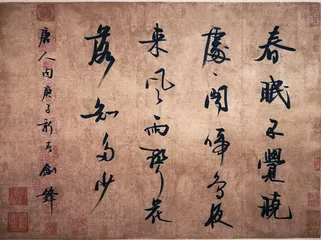 春眠不覺曉
處處聞啼鳥夜
來風雨聲花
落知多少
唐人句庚子新春劍鋒